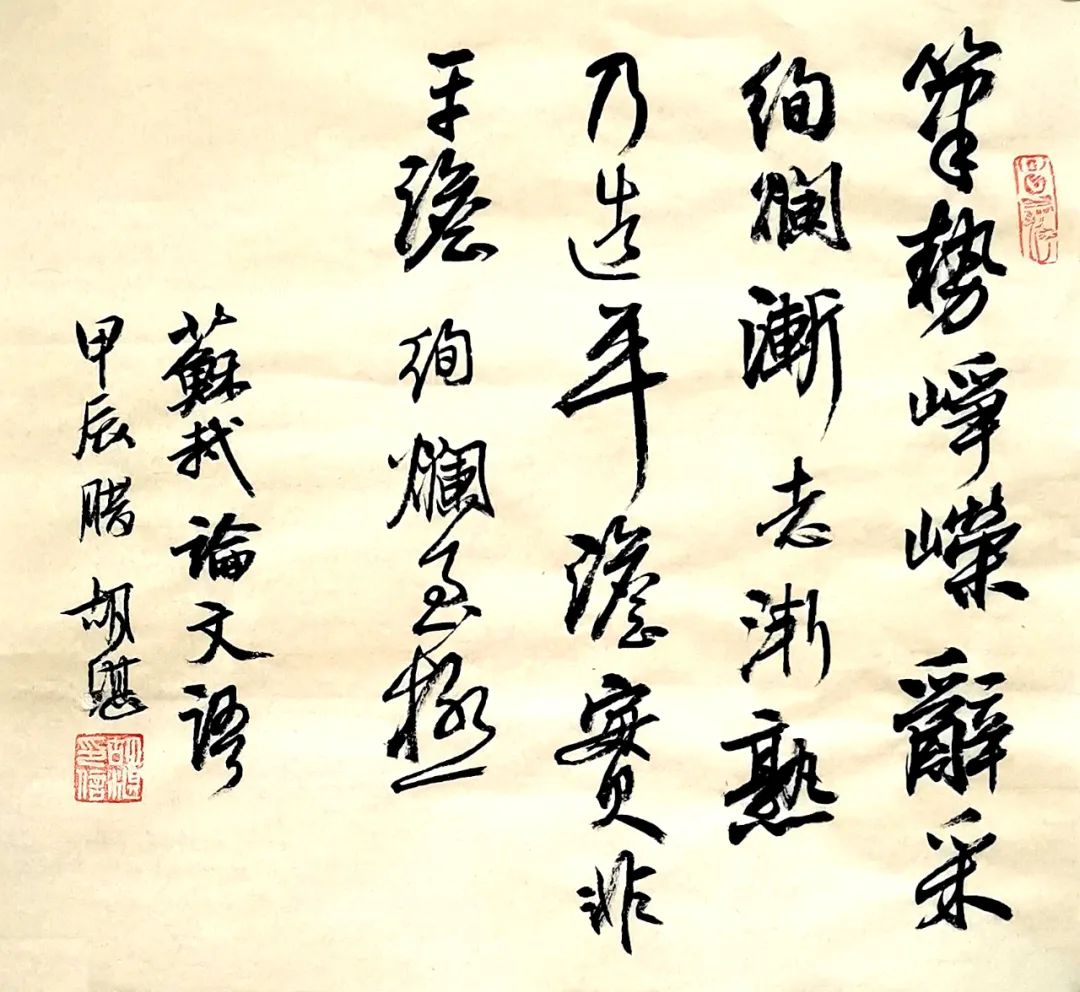 筆勢崢嶸辭采
絢爛漸老漸熟
乃造平澹實非
平澹絢爛之極
蘇軾論文語
甲辰臘 胡湛